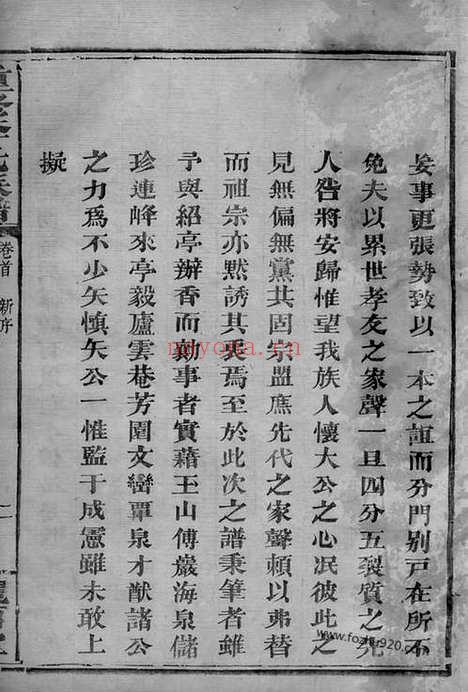 妄事更張勢致以一本之誼而分門別戸在所不
免夫以累世孝友之家聲一旦四分五裂質之先
人咎將安歸惟望我族人懷大公之心泯彼此之
見無偏無黨共固宗盟庶先代之家聲頼以弗替
而祖宗亦黙誘其衷焉至於此次之譜秉筆者雖
予與紹亭辦香而勷事者實藉玉山傅巖海泉儲
珍連峰來亭毅廬雲菴芳園文巒覃泉才猷諸公
之力爲不少矣慎矣公一惟監于成憲雖未敢上
擬
卷首 新序
二
ndyona.cn
www.fozhu920.com